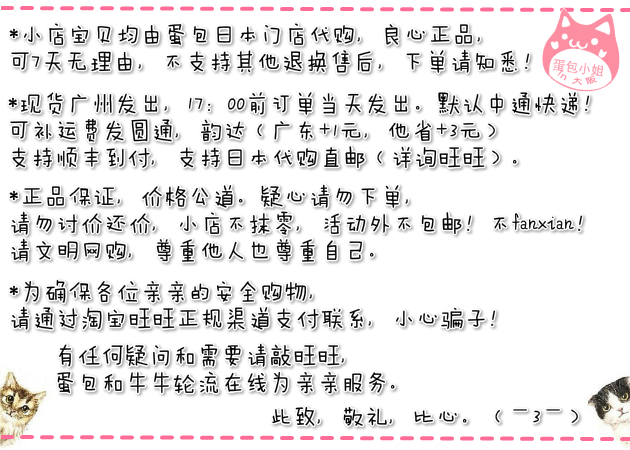 *小店宝贝均由蛋包日本门店代购, 良心正品,
可7天无理由, 不支持其他退换售后, 下单请知悉!
蛋包小姐
in 大阪
*现货广州发出, 17:00前订单当天发出。默认中通快递!
可补运费发圆通, 韵达(广东+1元, 他省+3元)
支持顺丰到付, 支持日本代购直邮(详询旺旺)。
*正品保证, 价格公道。疑心请勿下单,
请勿讨价还价, 小店不抹零, 活动外不包邮! 不fanxian!
请文明网购, 尊重他人也尊重自己。
*为确保各位亲亲的安全购物,
请通过淘宝旺旺正规渠道支付联系, 小心骗子!
有任何疑问和需要请敲旺旺,
蛋包和牛牛轮流在线为亲亲服务。
此致, 敬礼, 比心。(￣3￣)